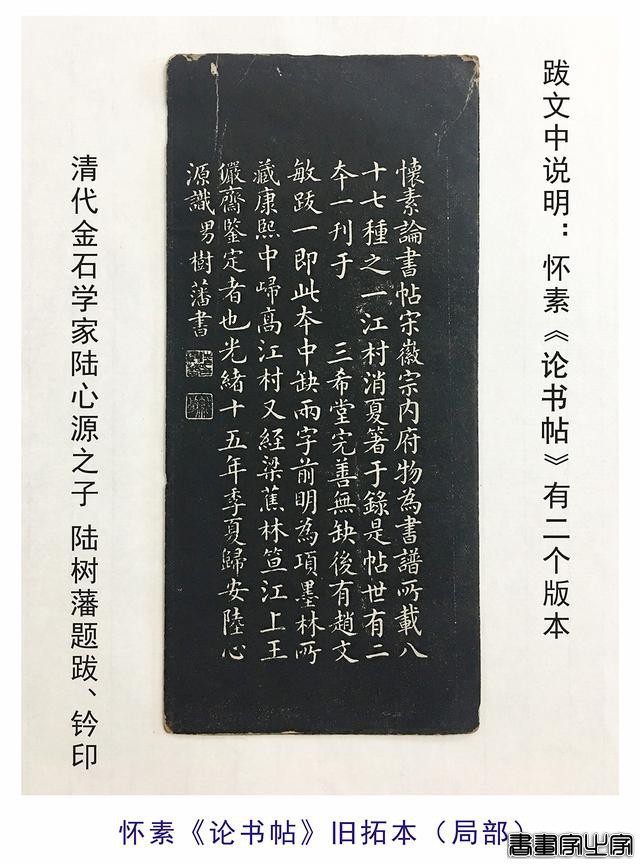 跋文中说明：怀素《论书帖》有二个版本
懷素論書帖宋徽宗内府物為書譜所載八
十七種之一江村消夏箸于錄是帖世有二
夲一刊于 三希堂完善無缺後有趙文
敏跋一即此夲中缺兩字前明為項墨林所
藏康熙中歸高江村又經梁蕉林笪江上王
儼齋鑒定者也光緒十五年季夏歸安陸心
源識男樹藩書
清代金石学家陆心源之子 陆树藩题跋、钤印
怀素《论书帖》旧拓本（局部）
書畫家之家